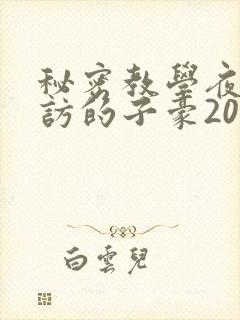 秘密教學夜
訪的子豪20
白雲兒